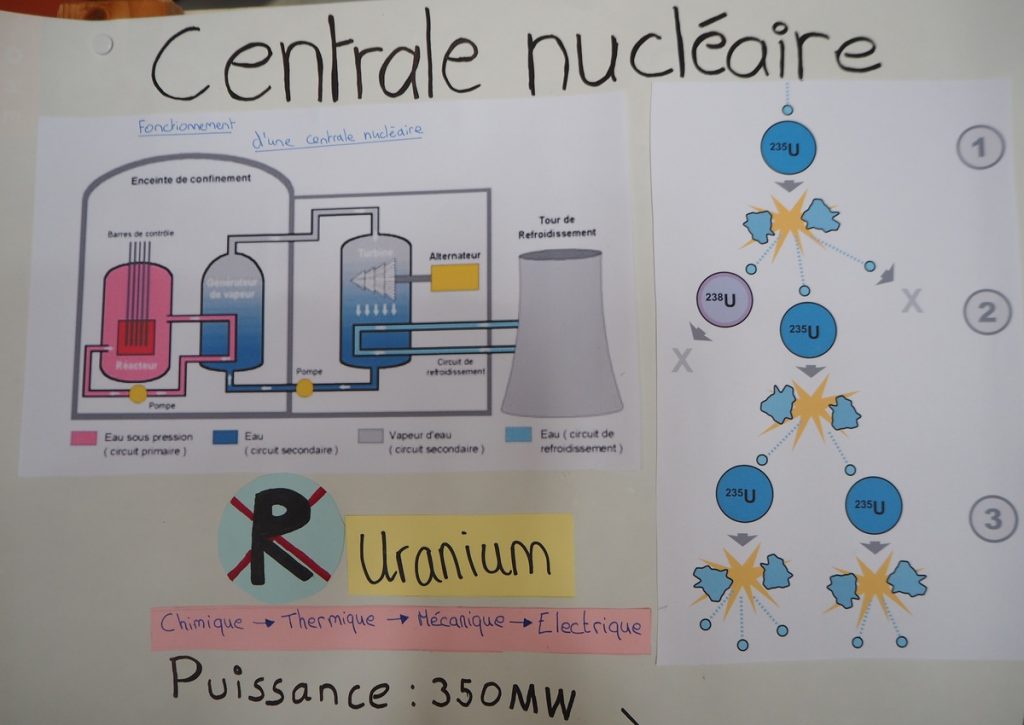 Centrale nucléaire
Fonctionnement
d'une centrale nucléaire
Enceinte de confinement
Barres de contrôle
Générateur
de vapeur
Turbine
Alternateur
Tour de
Refroidissement
Réacteur
Pompe
Pompe
Circuit de
refroidissement
Eau sous pression
( circuit primaire )
Eau
( circuit secondaire )
Vapeur d'eau
( circuit secondaire )
Eau ( circuit de
refroidissement )
235U
1
238U
X
235U
X
2
235U
235U
3
R
Uranium
Chimique → Thermique → Mécanique → Electrique
Puissance : 350MW